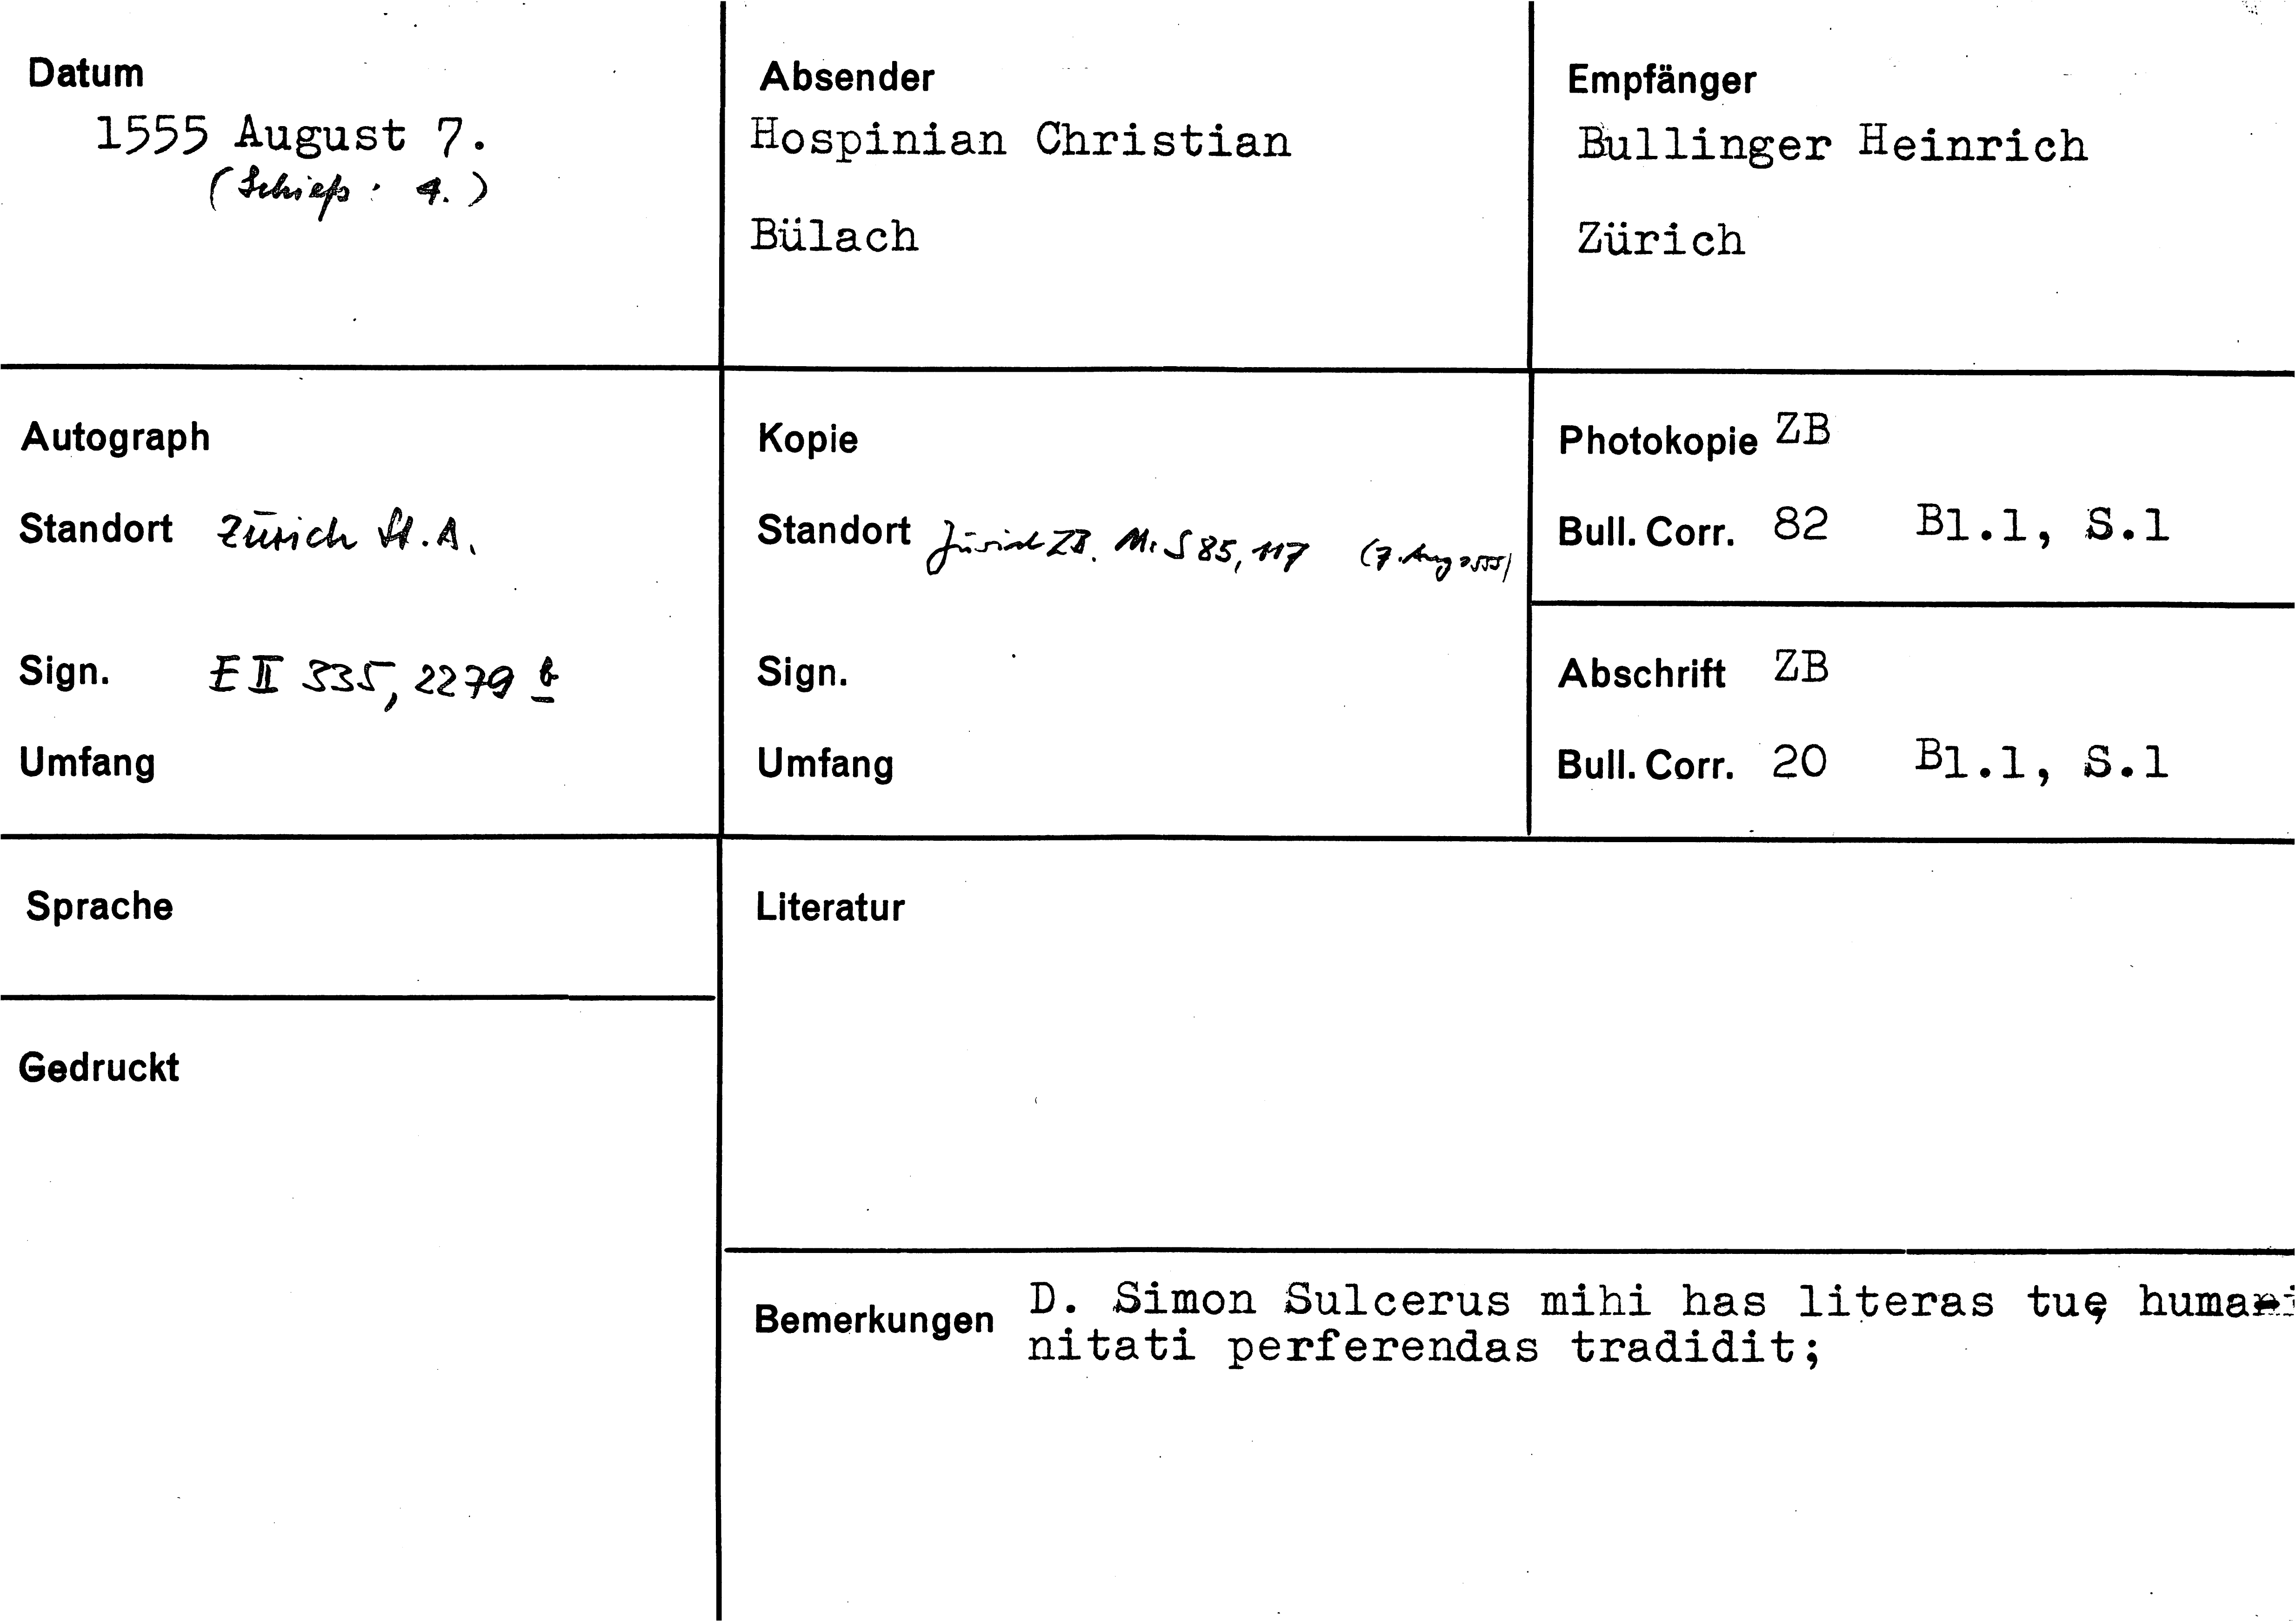 Datum
1555 August 7.
(Schieß: 4.)
Absender
Hospinian Christian
Bülach
Empfänger
Bullinger Heinrich
Zürich
Autograph
Standort Zürich St.A.
Sign. E II 335, 2279 b
Umfang
Kopie
Standort Zürich ZB. Ms S 85, 117 (7. Aug 1555)
Sign.
Umfang
Photokopie ZB
Bull. Corr. 82 Bl.1, S.1
Abschrift ZB
Bull. Corr. 20 Bl.1, S.1
Sprache
Gedruckt
Literatur
Bemerkungen D. Simon Sulcerus mihi has literas tuę humani
nitati perferendas tradidit;